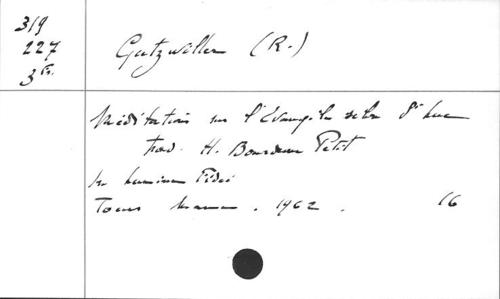 319
227
3 Ex.
Gutzwiller (R.)
Méditations sur l'Evangile selon St Luc
trad. H. Bourdeau Petit
In lumine Fidei
Tours Mame. 1962. 16